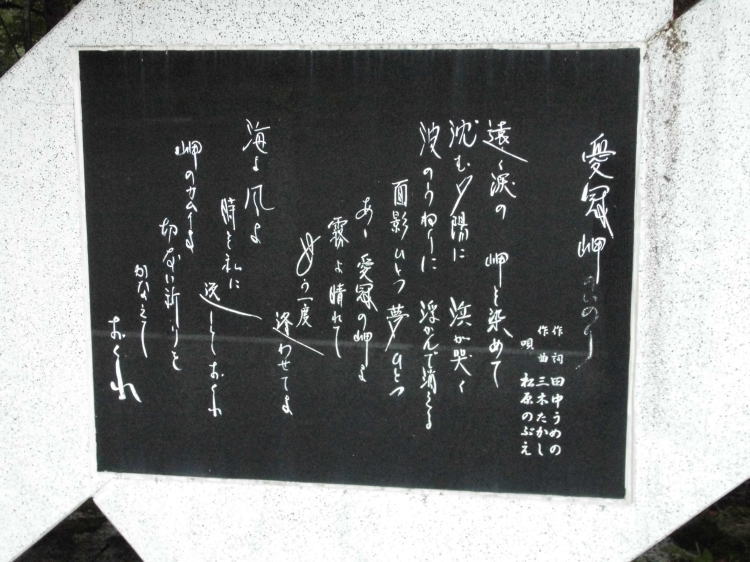 愛冠岬のいのり
作詞 田中うめの
作曲 三木たかし
唄 松原のぶえ
遠く涙の 岬を染めて
沈む夕陽に 浜が哭く
波のうねりに 浮かんで消える
面影ひとつ 夢ひとつ
あゝ愛冠の岬よ
霧よ晴れて
もう一度
逢わせてよ
海よ風よ
時を私に
返しておくれ
岬のカムイよ
切ない祈りを
かなえて
おくれ